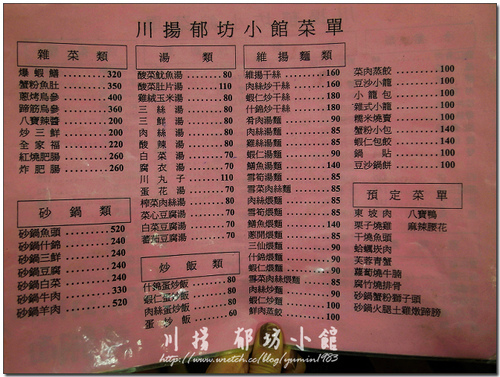 川揚郁坊小館菜單
雜菜類
爆蝦鱔 320
蟹粉魚肚 350
蔥烤烏參 400
蹄筋烏參 400
八寶辣醬 200
炒三鮮 200
全家福 220
紅燒肥腸 260
炸肥腸 260
砂鍋類
砂鍋魚頭 520
砂鍋什錦 240
砂鍋三鮮 240
砂鍋豆腐 240
砂鍋白菜 240
砂鍋牛肉 330
砂鍋羊肉 520
湯類
酸菜魷魚湯 80
酸菜肚片湯 110
雞絨玉米湯 80
三絲湯 80
三鮮湯 80
肉絲湯 80
酸辣湯 80
白菜湯 70
腐衣湯 70
川丸子 110
蛋花湯 70
榨菜肉絲湯 80
菜心豆腐湯 70
白菜豆腐湯 70
蕃茄豆腐湯 70
炒飯類
什錦蛋炒飯 80
蝦仁蛋炒飯 80
肉絲蛋炒飯 80
蛋炒飯 60
維揚麵類
維揚干絲 160
肉絲炒干絲 160
蝦仁炒干絲 180
什錦炒干絲 180
肴肉湯麵 90
肉絲湯麵 85
雞絲湯麵 85
蝦仁湯麵 90
鱔魚湯麵 140
雪筍湯麵 85
雪菜肉絲麵 85
雪筍煨麵 85
鱔魚煨麵 140
蔥開煨麵 85
三仙煨麵 90
什錦煨麵 90
蝦仁煨麵 90
雪菜肉絲煨麵 85
肉絲炒麵 90
蝦仁炒麵 90
鮮肉蒸餃 100
菜肉蒸餃 100
豆沙小籠 100
小龍包 100
雜式小籠 100
糯米燒賣 100
蟹粉小包 140
蝦仁包餃 140
鍋貼 100
豆沙鍋餅 100
預定菜單
東坡肉 八寶鴨
栗子燒雞 麻辣腰花
干燒魚頭
蛤蠣炊肉
芙蓉青蟹
蘿蔔燒牛腩
腐竹燒排骨
砂鍋蟹粉獅子頭
砂鍋火腿土雞燉蹄膀
川揚郁坊小館
http://www.wretch.cc/blog/yumin1983